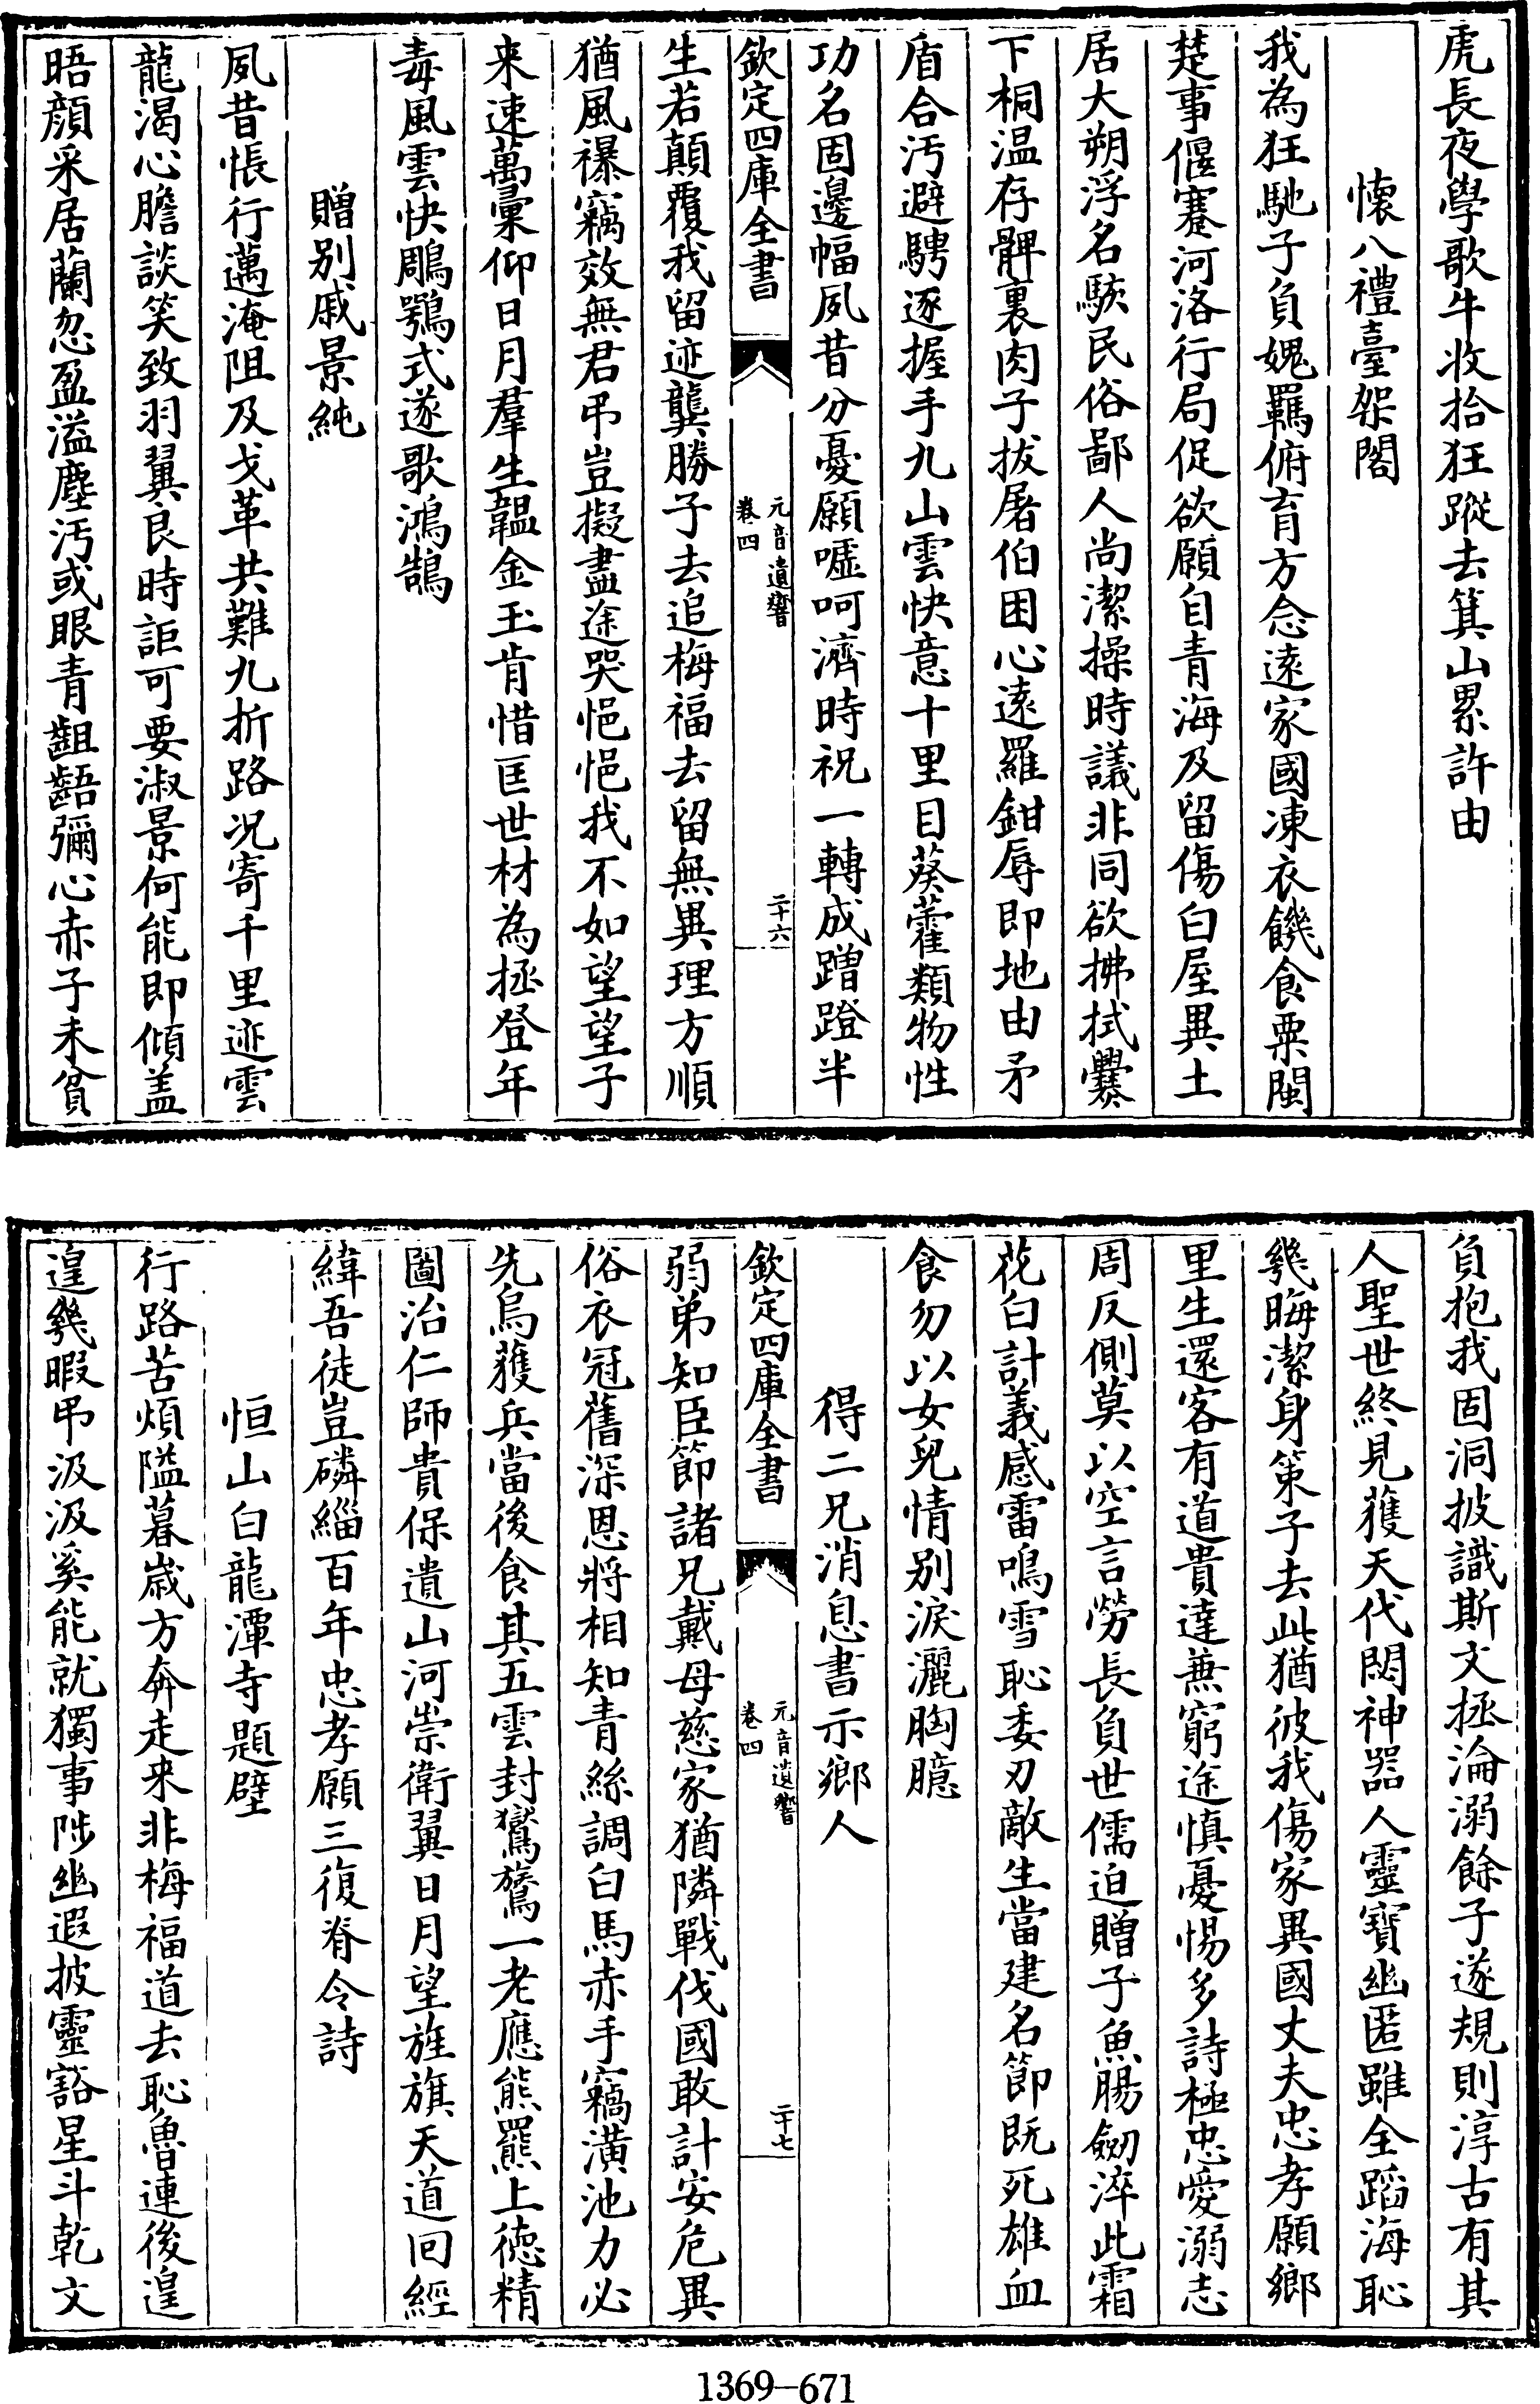 虎長夜學歌牛收拾狂蹤去箕山累許由
懷八禮臺架閣
我為狂馳子負媿羈俯育方念遠家國凍衣饑食粟閩
楚事偃蹇河洛行局促欲願自青海及留傷白屋異土
居大朔浮名駭民俗鄙人尚潔操時議非同欲拂拭爨
下桐温存髀裏肉子拔屠伯困心遠羅鉗辱即地由矛
盾合污避騁逐握手九山雲快意十里目葵藿類物性
功名固邊幅夙昔分憂願噓呵濟時祝一轉成蹭蹬半
欽定四庫全書
元音遺響
卷四
二十六
生若顛覆我留迹龔勝子去追梅福去留無異理方順
猶風襮竊效無君弔豈擬盡途哭悒悒我不如望望子
来速萬彙仰日月羣生韞金玉肯惜匡世材為拯登年
毒風雲快鵰鶚式遂歌鴻鵠
贈别戚景純
夙昔悵行邁淹阻及戈革共難九折路况寄千里迹雲
龍渴心膽談笑致羽翼良時詎可要淑景何能即傾盖
晤顔采居蘭忽盈溢塵污或眼青齟齬彌心赤子未貧
負抱我固洞披識斯文拯淪溺餘子遂規則淳古有其
人聖世終見獲天代閟神器人靈寶幽匿雖全蹈海恥
幾晦潔身策子去此猶彼我傷家異國丈夫忠孝願鄉
里生還客有道貴達兼窮途慎憂惕多詩極忠愛溺志
周反側莫以空言勞長負世儒迫贈子魚腸劒淬此霜
花白計義感雷鳴雪恥委刃敵生當建名節既死雄血
食勿以女兒情别淚灑胸臆
得二兄消息書示鄉人
欽定四庫全書
元音遺響
卷四
二十七
弱弟知臣節諸兄戴母慈家猶隣戰伐國敢計安危異
俗衣冠舊深恩將相知青絲調白馬赤手竊潢池力必
先烏獲兵當後食其五雲封鸑鷟一老應熊羆上徳精
圖治仁師貴保遺山河崇衛翼日月望旌旗天道回經
緯吾徒豈磷緇百年忠孝願三復脊令詩
恒山白龍潭寺題壁
行路苦煩隘暮嵗方奔走来非梅福道去恥魯連後遑
遑幾暇弔汲汲奚能就獨事陟幽遐披靈豁星斗乾文
1369—671